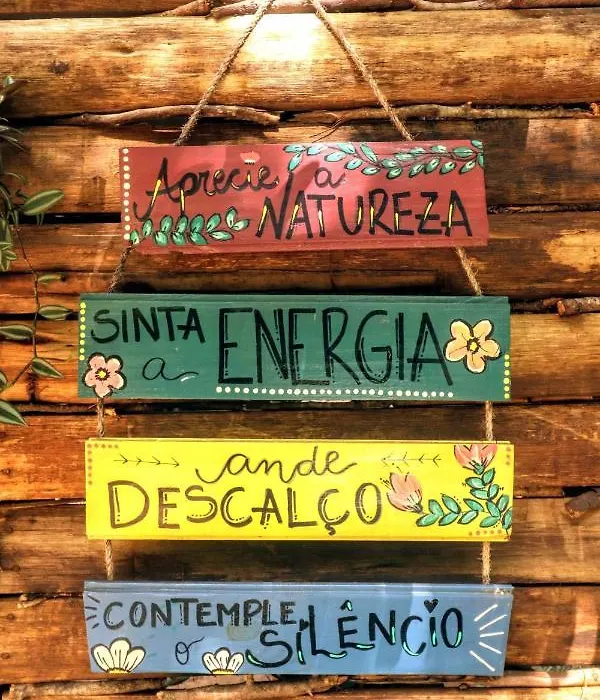 Aprecie a
NATUREZA
SINTA
a ENERGIA
ande
DESCALÇO
CONTEMPLE
o SILÊNCIO